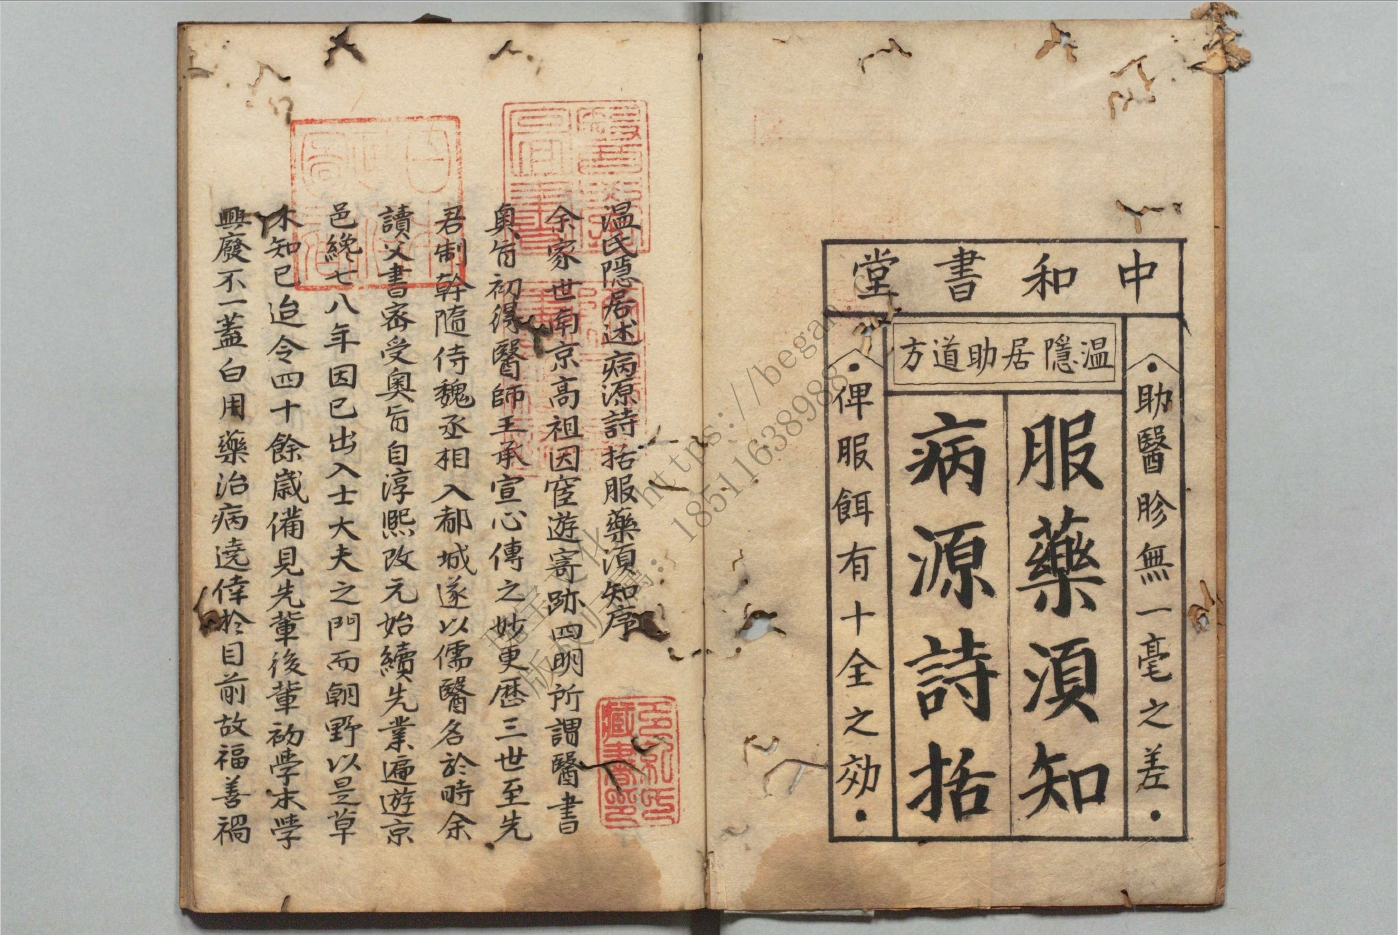 中和書堂
温隱居助道方
服藥須知
病源詩括
助醫胗無一毫之差
俾服餌有十全之効
温氏隱居述病源詩括服藥須知序
余家世南京高祖因宦遊寄跡四明所謂醫書
奥旨初得醫師王承宣心傳之妙更歷三世至先
君制幹隨侍魏丞相入都城遂以儒醫名於時余
讀父書密受奥旨自淳熙改元始續先業遍遊京
邑纔七八年因已出入士大夫之門而朝野以是草
木知已迨今四十餘歲備見先輩後輩初學末學
興廢不一蓋白用藥治病僥倖於目前故福善禍
https://began.
18511638988